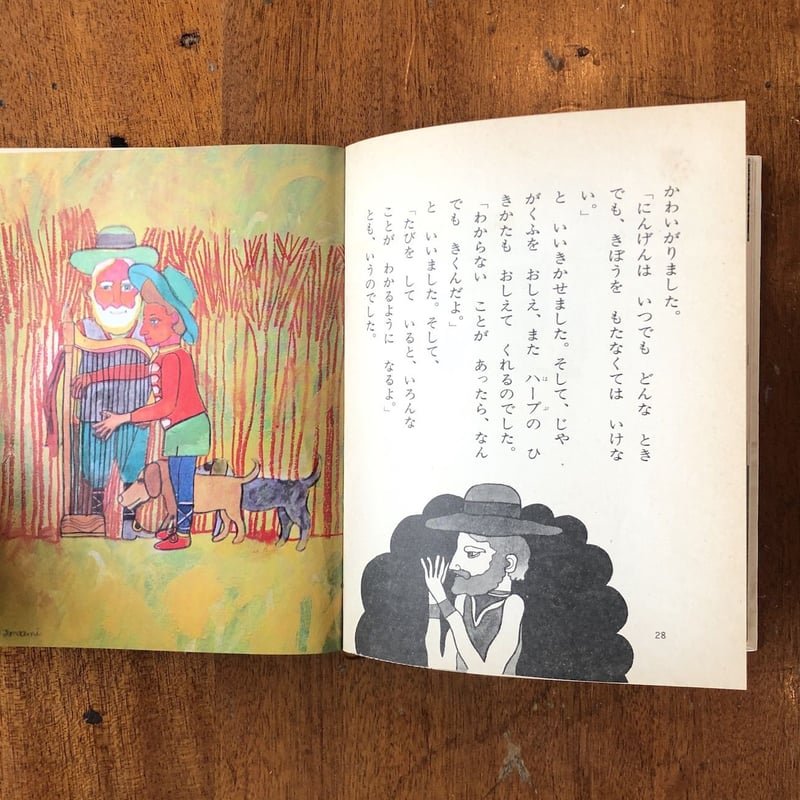 かわいがりました。
「にんげんは いつでも どんな とき
でも、きぼうを もたなくては いけな
い。」
と いいきかせました。そして、じゃ
がくふを おしえ、また ハープの ひ
きかたも おしえて くれるのでした。
「わからない ことが あったら、なん
でも きくんだよ。」
と いいました。そして、
「たびを して いると、いろんな
ことが わかるように なるよ。」
とも、いうのでした。
28